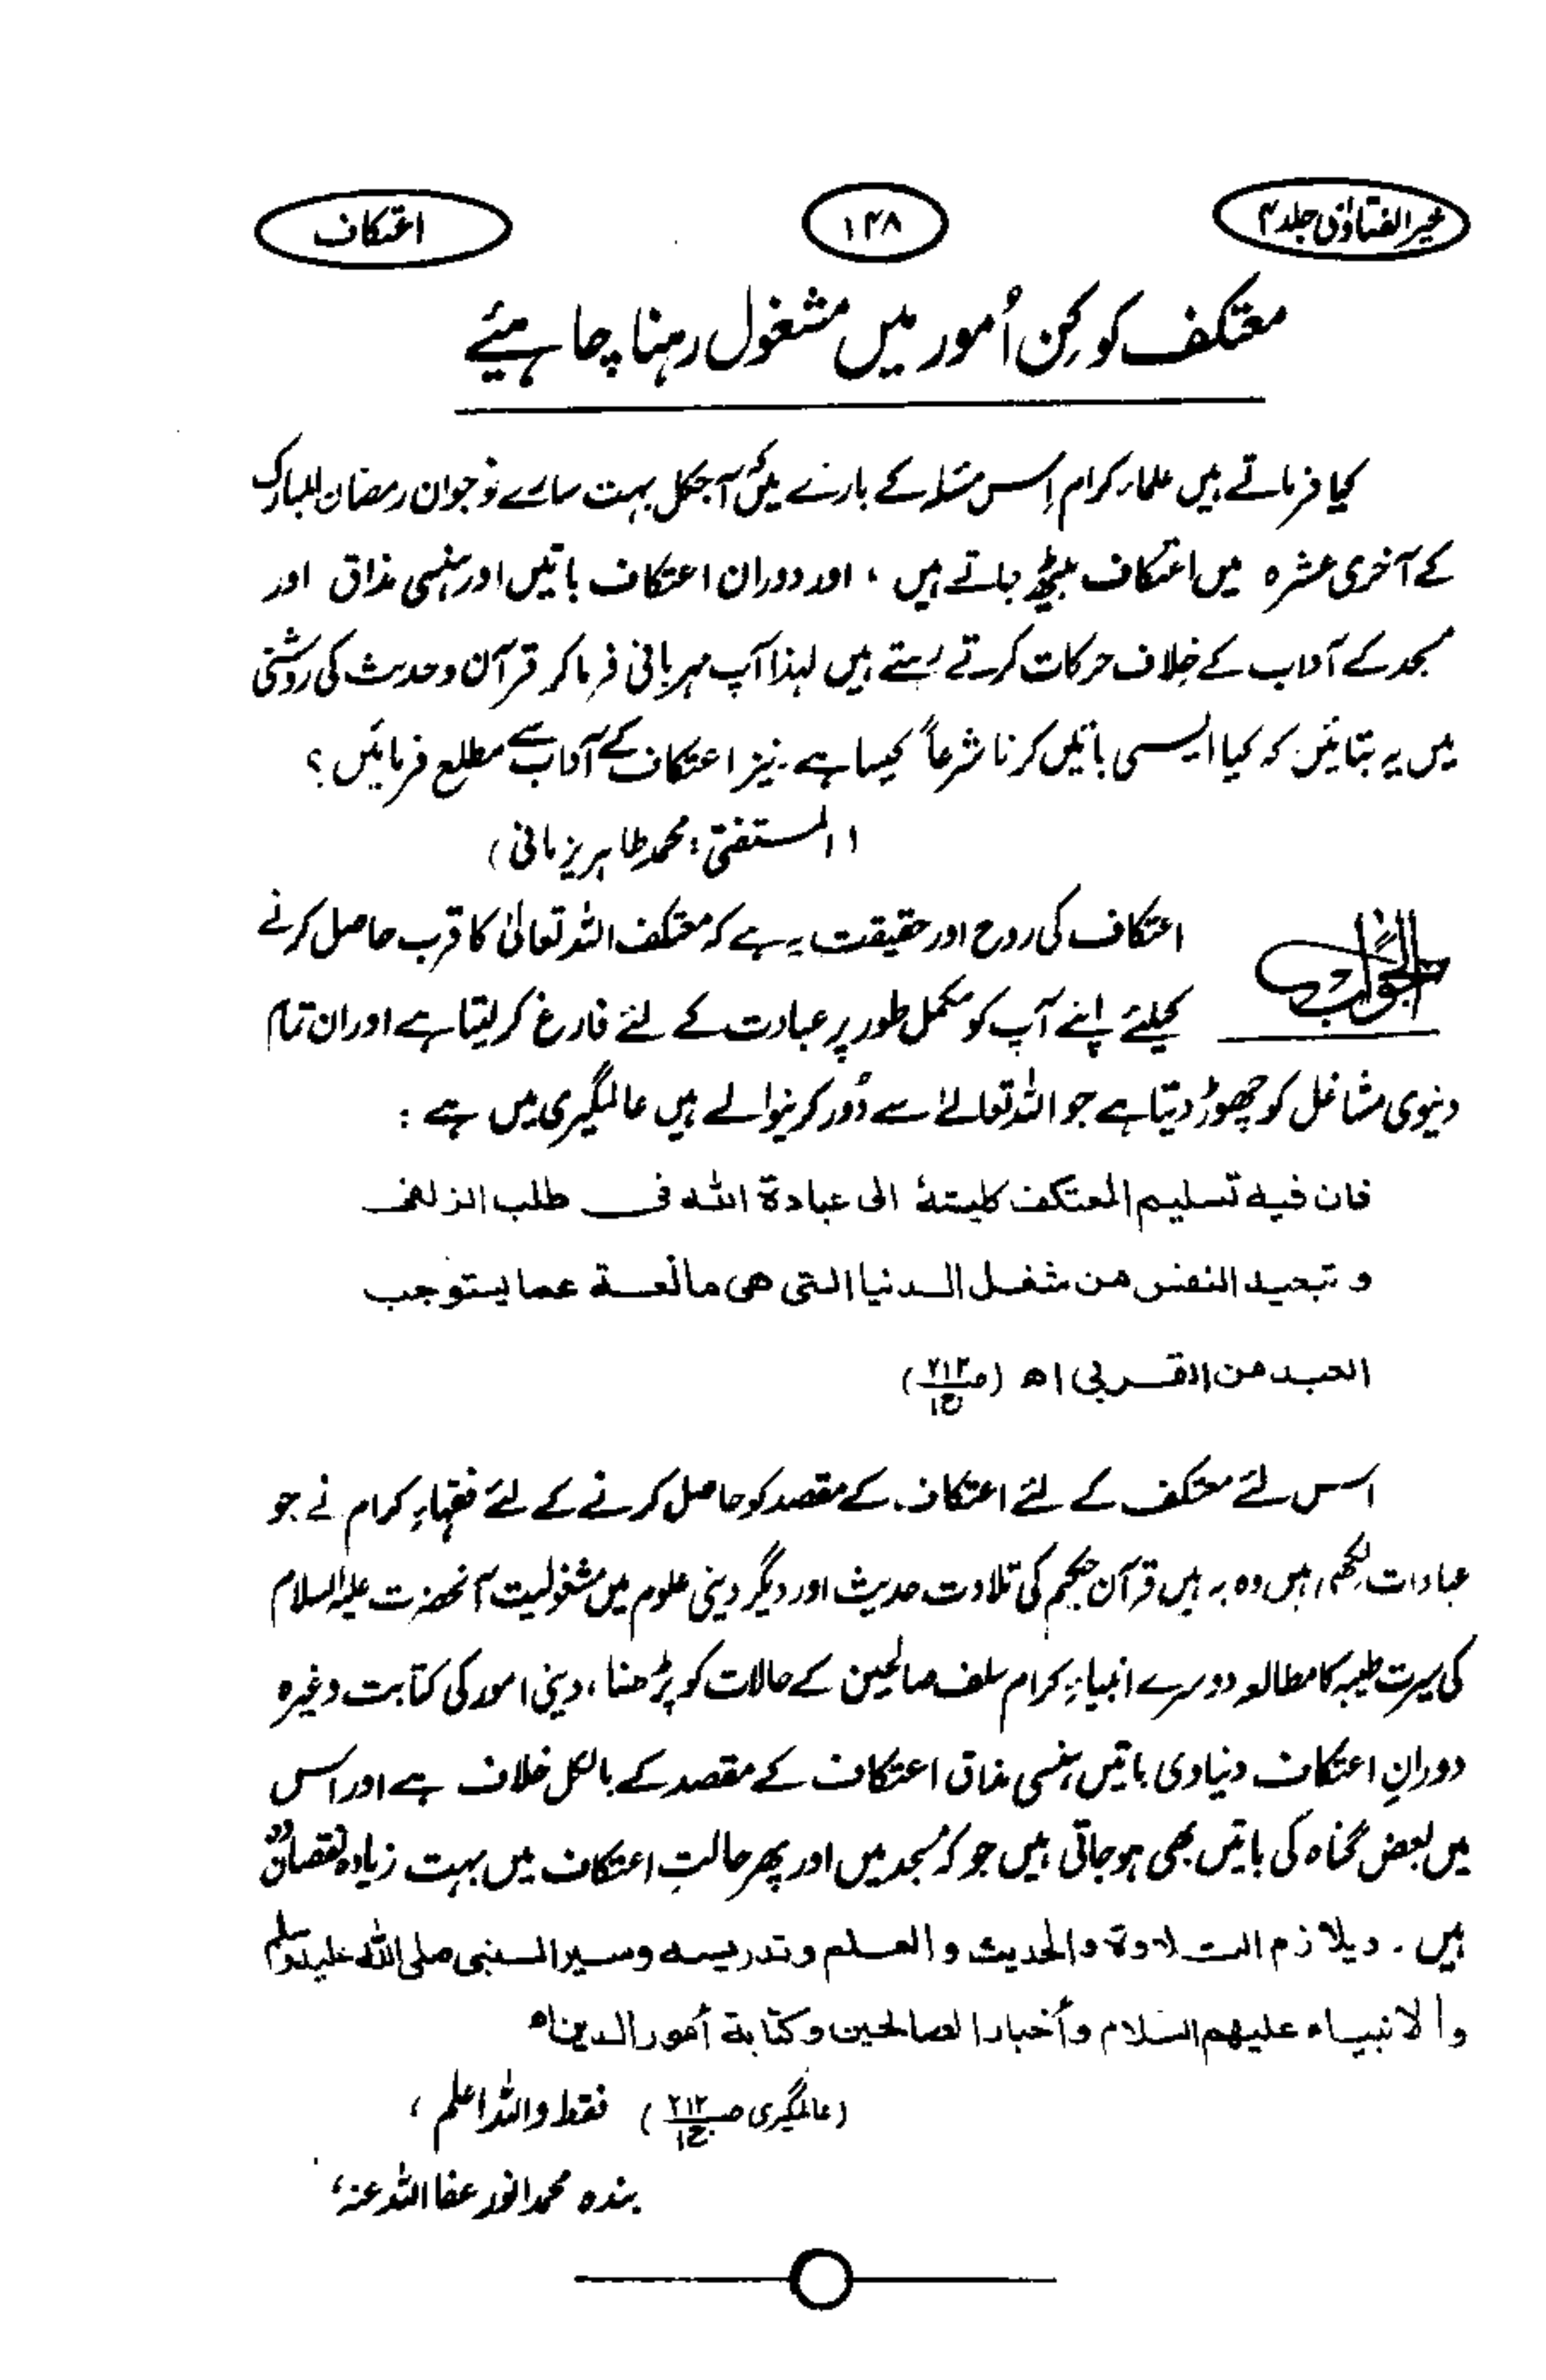 خیر الفتاویٰ جلد ۴
۱۴۸
اعتکاف
معتکف کو کِن اُمور میں مشغول رہنا چاہیئے
کیا فرماتے ہیں علماء کرام اِس مسئلہ کے بارے میں کہ آجکل بہت سارے نوجوان رمضان المبارک
کے آخری عشرہ میں اعتکاف بیٹھ جاتے ہیں ، اور دوران اعتکاف باتیں اور ہنسی مذاق اور
مسجد کے آداب کے خلاف حرکات کرتے رہتے ہیں لہٰذا آپ مہربانی فرما کر قرآن و حدیث کی روشنی
میں یہ بتائیں کہ کیا ایسی باتیں کرنا شرعاً کیسا ہے ۔ نیز اعتکاف کے آداب سے مطلع فرمائیں ؟
(المستفتی : محمد طاہر یزمانی)
الجواب
اعتکاف کی روح اور حقیقت یہ ہے کہ معتکف اللہ تعالیٰ کا قرب حاصل کرنے
کیلئے اپنے آپ کو مکمل طور پر عبادت کے لئے فارغ کر لیتا ہے اور ان تمام
دنیوی مشاغل کو چھوڑ دیتا ہے جو اللہ تعالےٰ سے دُور کرنیوالے ہیں عالمگیری میں ہے :
فان فيه تسليم المعتكف كليته الى عبادة الله فى طلب الزلفى
و تبعيد النفس من شغل الدنيا التى هى مانعة عما يستوجب
العبد من القربى اھ (ص ۲۱۲ ج۱)
اس لئے معتکف کے لئے اعتکاف کے مقصد کو حاصل کرنے کے لئے فقہاءِ کرام نے جو
عبادات لکھی ہیں وہ یہ ہیں قرآن حکیم کی تلاوت حدیث اور دیگر دینی علوم میں مشغولیت آنحضرت علیہ السلام
کی سیرت طیبہ کا مطالعہ دوسرے انبیاءِ کرام سلف صالحین کے حالات کو پڑھنا ، دینی امور کی کتابت وغیرہ
دورانِ اعتکاف دنیاوی باتیں ، ہنسی مذاق اعتکاف کے مقصد کے بالکل خلاف ہے اور اس
میں بعض گناہ کی باتیں بھی ہو جاتی ہیں جو کہ مسجد میں اور پھر حالتِ اعتکاف میں بہت زیادہ نقصان دہ
ہیں ۔ ويلازم التلاوة والحديث والعلم وتدريسه وسير النبى صلى الله عليه وسلم
والانبياء عليهم السلام وأخبار الصالحين وكتابة أمور الدين اھ
(عالمگیری ص ۲۱۲ ج۱) فقط واللہ اعلم ،
بندہ محمد انور عفا اللہ عنہ ،